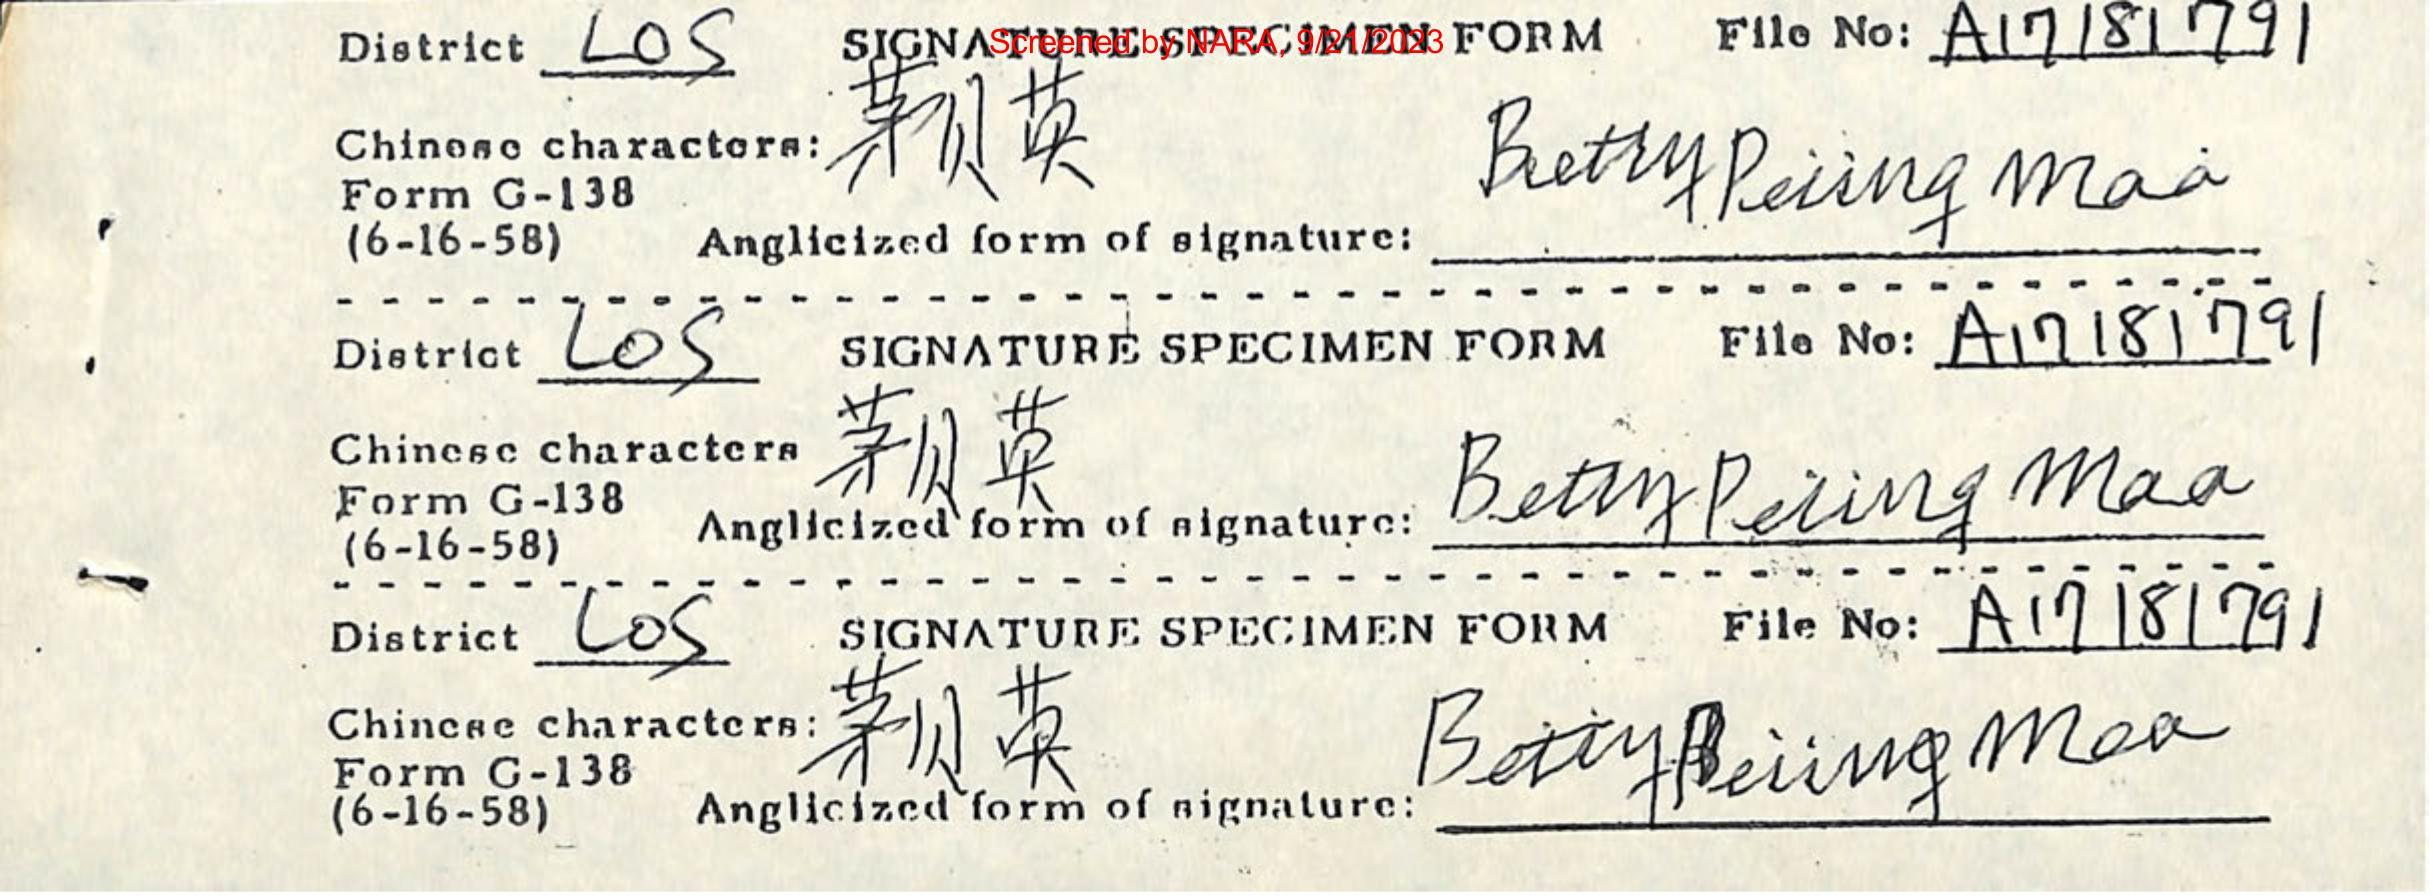 District LOS SIGNATURE SPECIMEN FORM File No: A17181791
Screened by NARA, 9/21/2023
Chinese characters: 茅贝英
Form G-138
(6-16-58) Anglicized form of signature: Betty Peiing Maa
District LOS SIGNATURE SPECIMEN FORM File No: A17181791
Chinese characters 茅贝英
Form G-138
(6-16-58) Anglicized form of signature: Betty Peiing Maa
District LOS SIGNATURE SPECIMEN FORM File No: A17181791
Chinese characters: 茅贝英
Form G-138
(6-16-58) Anglicized form of signature: Betty Peiing Maa